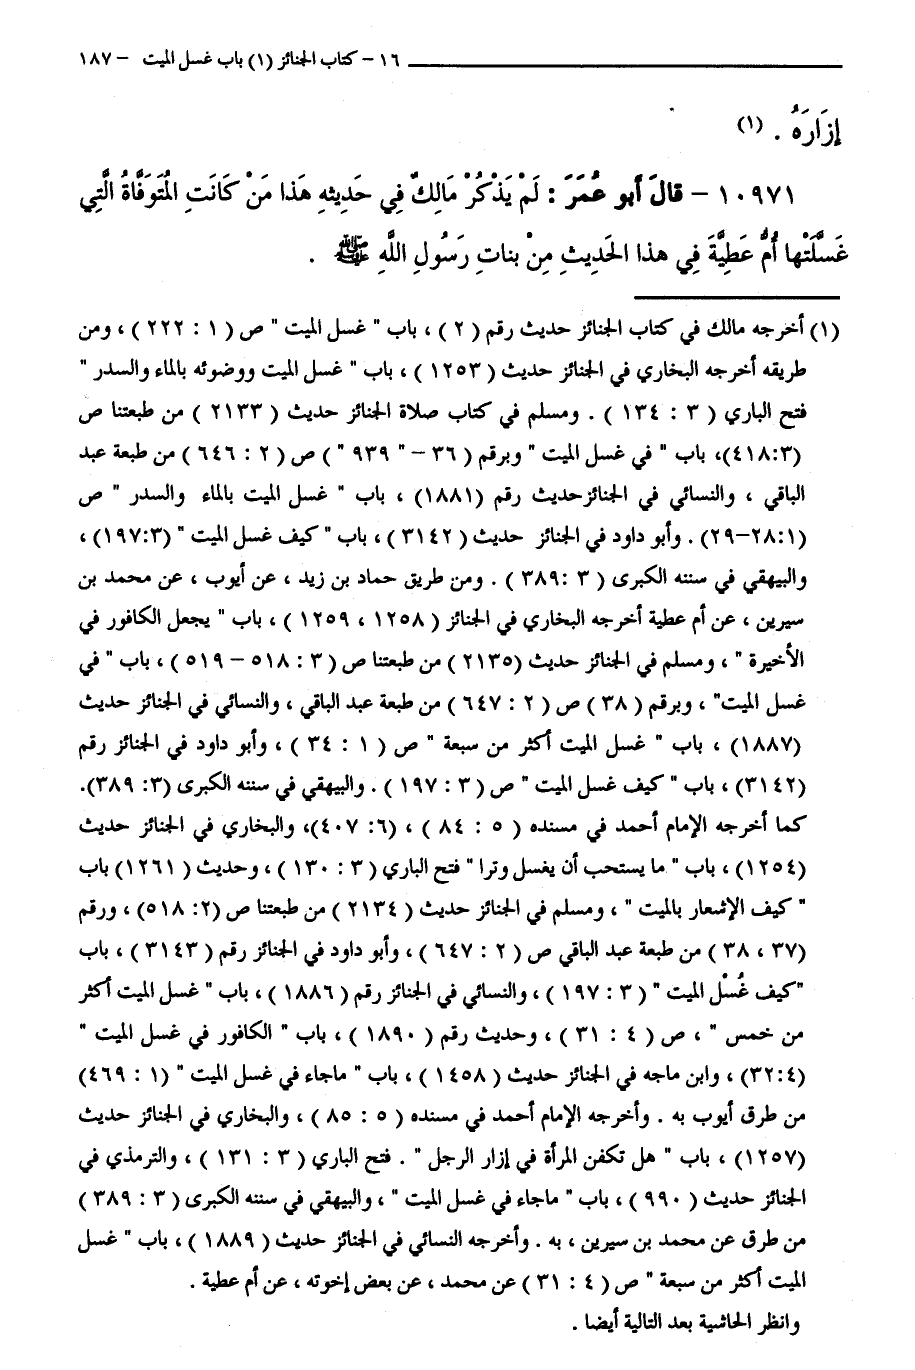 ١٦ – كتاب الجنائز (١) باب غسل الميت – ١٨٧
إِزَارَهُ . (١)
١٠٩٧١ – قالَ أبو عُمَرَ : لَمْ يَذْكُرْ مَالِكٌ فِي حَدِيثِهِ هَذا مَنْ كَانَتِ المُتَوَفَّاةُ الَّتِي
غَسَّلَتْها أُمُّ عَطِيَّةَ فِي هذا الحَدِيثِ مِنْ بناتِ رَسُولِ اللَّهِ ﷺ .
(١) أخرجه مالك في كتاب الجنائز حديث رقم ( ٢ ) ، باب " غسل الميت " ص ( ١ : ٢٢٢ ) ، ومن
طريقه أخرجه البخاري في الجنائز حديث ( ١٢٥٣ ) ، باب " غسل الميت ووضوئه بالماء والسدر "
فتح الباري ( ٣ : ١٣٤ ) . ومسلم في كتاب صلاة الجنائز حديث ( ٢١٣٣ ) من طبعتنا ص
(٤١٨:٣)، باب " في غسل الميت " وبرقم ( ٣٦ – " ٩٣٩ " ) ص ( ٢ : ٦٤٦ ) من طبعة عبد
الباقي ، والنسائي في الجنائزحديث رقم (١٨٨١) ، باب " غسل الميت بالماء والسدر " ص
(٢٨:١–٢٩) . وأبو داود في الجنائز حديث ( ٣١٤٢ ) ، باب " كيف غسل الميت " (١٩٧:٣) ،
والبيهقي في سننه الكبرى ( ٣ :٣٨٩ ) . ومن طريق حماد بن زيد ، عن أيوب ، عن محمد بن
سيرين ، عن أم عطية أخرجه البخاري في الجنائز ( ١٢٥٨ ، ١٢٥٩ ) ، باب " يجعل الكافور في
الأخيرة " ، ومسلم في الجنائز حديث (٢١٣٥ ) من طبعتنا ص ( ٣ : ٥١٨ – ٥١٩ ) ، باب " في
غسل الميت" ، وبرقم ( ٣٨ ) ص ( ٢ : ٦٤٧ ) من طبعة عبد الباقي ، والنسائي في الجنائز حديث
(١٨٨٧) ، باب " غسل الميت أكثر من سبعة " ص ( ١ : ٣٤ ) ، وأبو داود في الجنائز رقم
(٣١٤٢) ، باب " كيف غسل الميت " ص ( ٣ : ١٩٧ ) . والبيهقي في سننه الكبرى (٣: ٣٨٩).
كما أخرجه الإمام أحمد في مسنده ( ٥ : ٨٤ ) ، (٦: ٤٠٧)، والبخاري في الجنائز حديث
(١٢٥٤) ، باب " ما يستحب أن يغسل وترا " فتح الباري ( ٣ : ١٣٠ ) ، وحديث ( ١٢٦١) باب
" كيف الإشعار بالميت " ، ومسلم في الجنائز حديث ( ٢١٣٤ ) من طبعتنا ص (٢: ٥١٨) ، ورقم
(٣٧ ، ٣٨ ) من طبعة عبد الباقي ص ( ٢ : ٦٤٧ ) ، وأبو داود في الجنائز رقم ( ٣١٤٣ ) ، باب
"كيف غُسْل الميت " ( ٣ : ١٩٧ ) ، والنسائي في الجنائز رقم ( ١٨٨٦ ) ، باب " غسل الميت أكثر
من خمس " ، ص ( ٤ : ٣١ ) ، وحديث رقم ( ١٨٩٠ ) ، باب " الكافور في غسل الميت "
(٣٢:٤) ، وابن ماجه في الجنائز حديث ( ١٤٥٨ ) ، باب " ماجاء في غسل الميت " (١ : ٤٦٩)
من طرق أيوب به . وأخرجه الإمام أحمد في مسنده ( ٥ : ٨٥ ) ، والبخاري في الجنائز حديث
(١٢٥٧) ، باب " هل تكفن المرأة في إزار الرجل " . فتح الباري ( ٣ : ١٣١ ) ، والترمذي في
الجنائز حديث ( ٩٩٠ ) ، باب " ماجاء في غسل الميت " ، والبيهقي في سننه الكبرى ( ٣ : ٣٨٩ )
من طرق عن محمد بن سيرين ، به . وأخرجه النسائي في الجنائز حديث ( ١٨٨٩ ) ، باب " غسل
الميت أكثر من سبعة " ص ( ٤ : ٣١ ) عن محمد ، عن بعض إخوته ، عن أم عطية .
وانظر الحاشية بعد التالية أيضا .